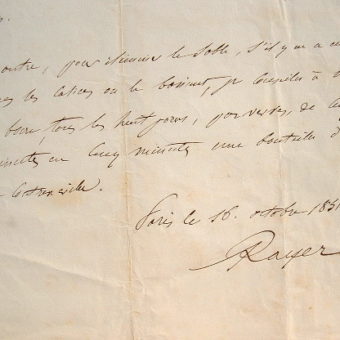 outre, pour éliminer le sable, s'il y en a
les calices ou le bassinet, je conseille à
boire, tous les huit jours, par verres, de
minutes en cinq minutes une bouteille d'
Contrexeville.
Paris le 16 octobre 185
Rayer